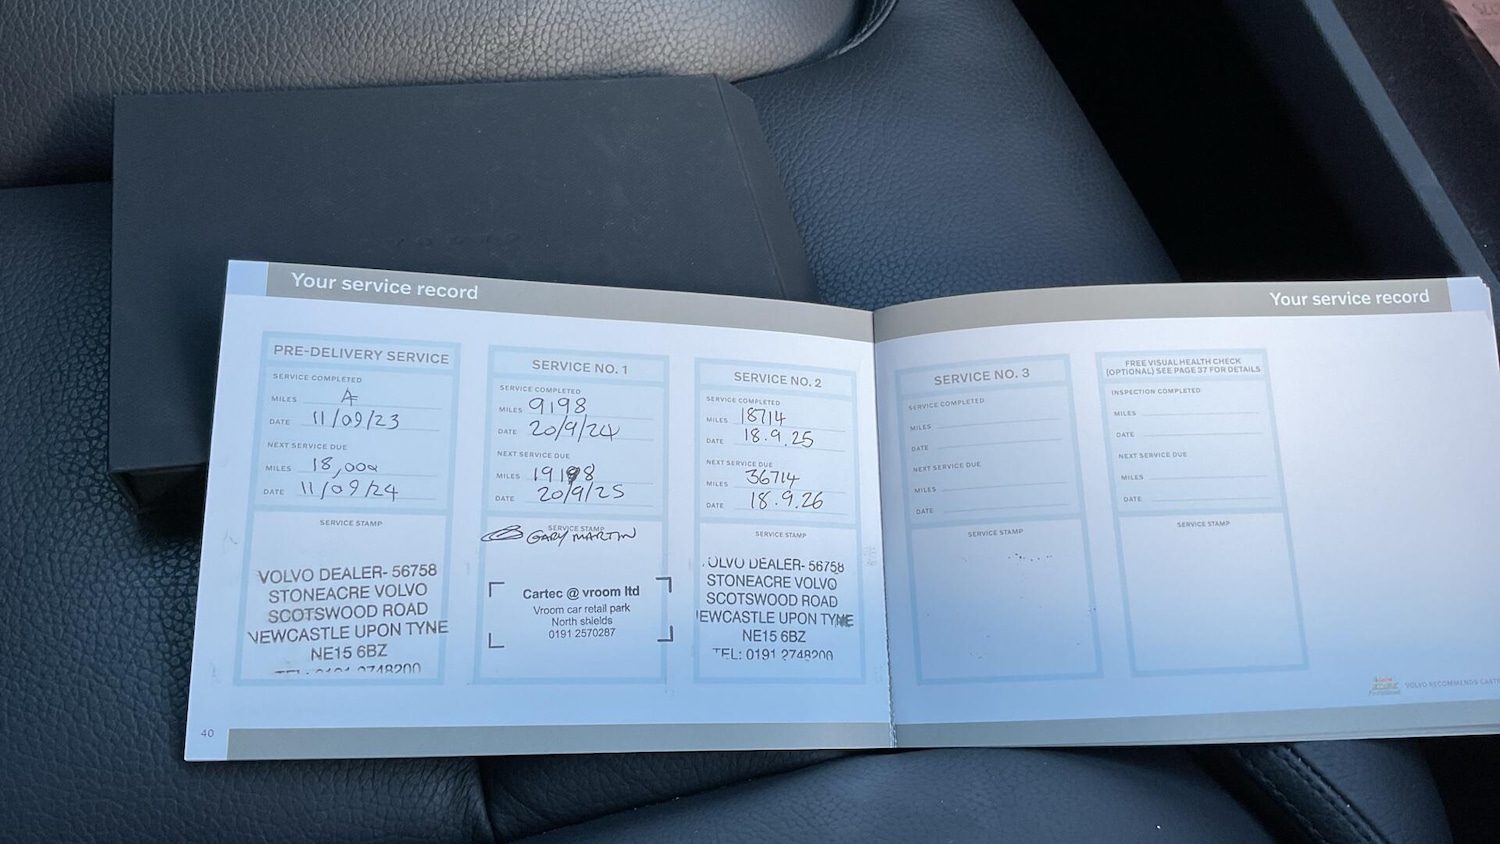 Your service record
PRE-DELIVERY SERVICE
SERVICE COMPLETED
MILES
DATE 11/09/23
NEXT SERVICE DUE
MILES 18,000
DATE 11/09/24
SERVICE STAMP
VOLVO DEALER- 56758
STONEACRE VOLVO
SCOTSWOOD ROAD
NEWCASTLE UPON TYNE
NE15 6BZ
TEL: 0191 2748200
SERVICE NO. 1
SERVICE COMPLETED
MILES 9198
DATE 20/9/24
NEXT SERVICE DUE
MILES 19198
DATE 20/9/25
SERVICE STAMP
GARY MARTIN
Cartec @ vroom ltd
Vroom car retail park
North shields
0191 2570287
SERVICE NO. 2
SERVICE COMPLETED
MILES 18714
DATE 18.9.25
NEXT SERVICE DUE
MILES 36714
DATE 18.9.26
SERVICE STAMP
VOLVO DEALER- 56758
STONEACRE VOLVO
SCOTSWOOD ROAD
NEWCASTLE UPON TYNE
NE15 6BZ
TEL: 0191 2748200
40
Your service record
SERVICE NO. 3
SERVICE COMPLETED
MILES
DATE
NEXT SERVICE DUE
MILES
DATE
SERVICE STAMP
FREE VISUAL HEALTH CHECK
(OPTIONAL) SEE PAGE 37 FOR DETAILS
INSPECTION COMPLETED
MILES
DATE
NEXT SERVICE DUE
MILES
DATE
SERVICE STAMP
VOLVO RECOMMENDS